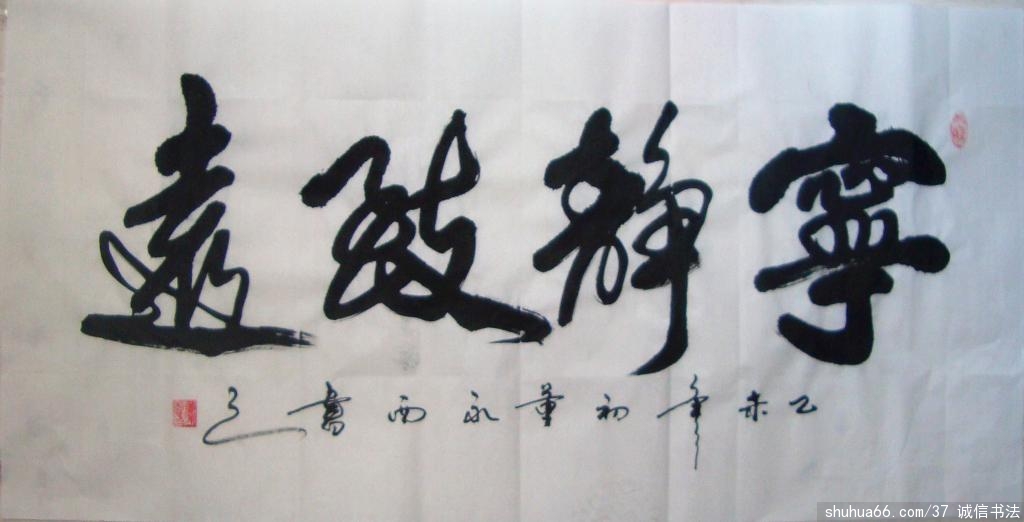 寧靜致遠
乙未年初董永西書
shuhua66.com/37 诚信书法